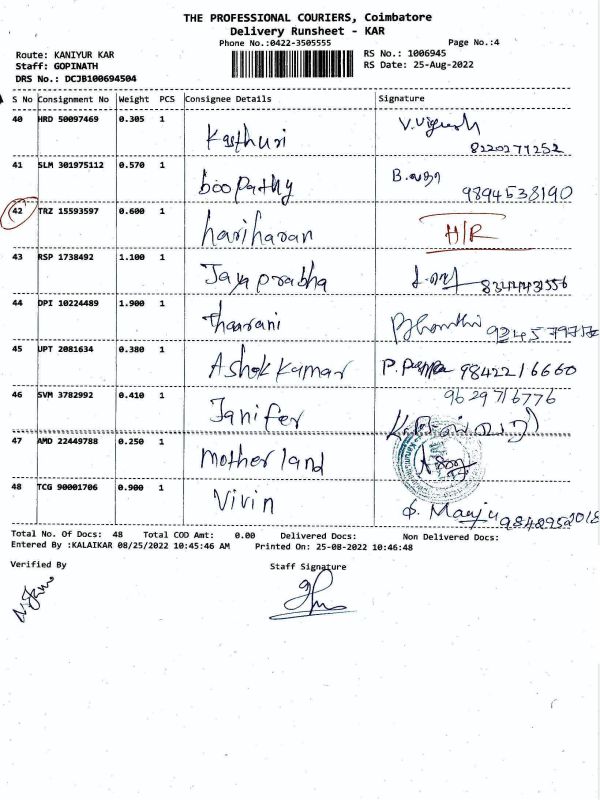 THE PROFESSIONAL COURIERS, Coimbatore
Delivery Runsheet - KAR
Phone No.:0422-3505555 Page No.:4
Route: KANIYUR KAR RS No.: 1006945
Staff: GOPINATH RS Date: 25-Aug-2022
DRS No.: DCJB100694504
S No Consignment No Weight PCS Consignee Details Signature
40 HRD 50097469 0.305 1 Kasthuri V. Vignesh
8220277252
41 SLM 301975112 0.570 1 boopathy B.
9894538190
42 TRZ 15593597 0.600 1 hariharan H/R
43 RSP 1738492 1.100 1 Jayaprabha
44 DPI 10224489 1.900 1 Thaarani
45 UPT 2081634 0.380 1 Ashok Kumar P. 9842216660
46 SVM 3782992 0.410 1 Janifer 9629716776
47 AMD 22449788 0.250 1 Motherland
48 TCG 90001706 0.900 1 Vivin
Total No. Of Docs: 48 Total COD Amt: 0.00 Delivered Docs: Non Delivered Docs:
Entered By :KALAIKAR 08/25/2022 10:45:46 AM Printed On: 25-08-2022 10:46:48
Verified By Staff Signature